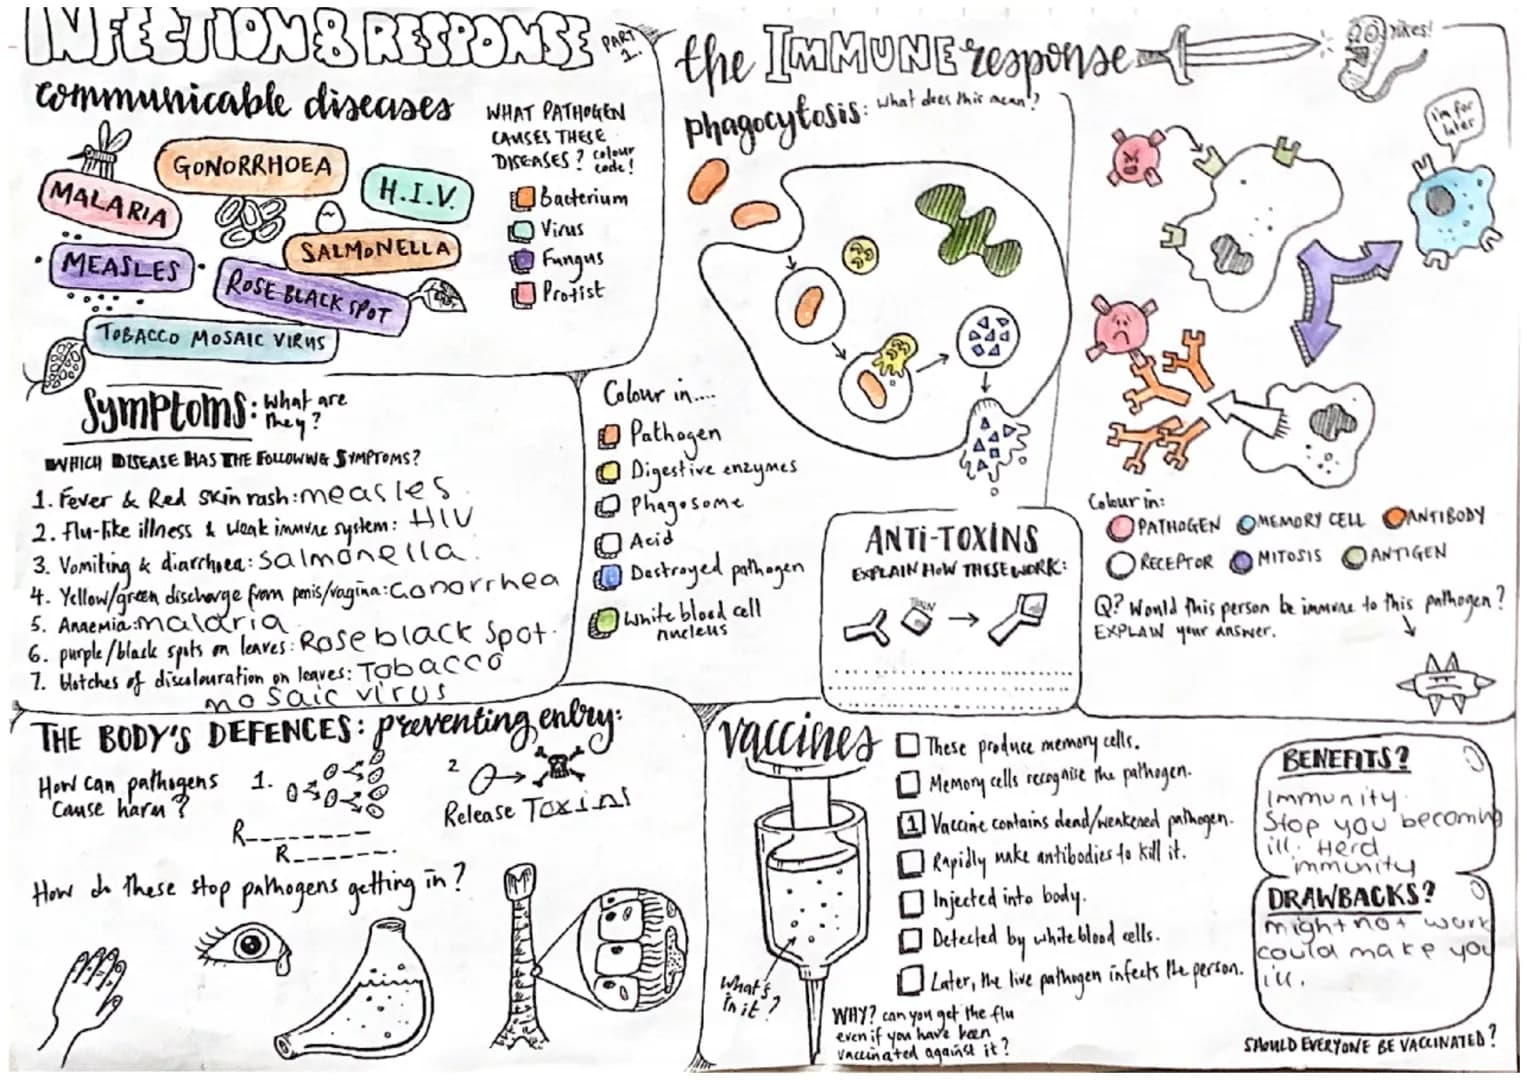 INFECTION & RESPONSE PART 1.
communicable diseases
WHAT PATHOGEN
CAUSES THESE
DISEASES? colour
code!
GONORRHOEA
MALARIA
H.I.V.
SALMONELLA
MEASLES
ROSE BLACK SPOT
TOBACCO MOSAIC VIRUS
Bacterium
Virus
Fungus
Protist
Symptoms: What are
they?
WHICH DISEASE HAS THE FOLLOWING SYMPTOMS?
1. Fever & Red skin rash: measles
2. flu-like illness & weak immune system: HIV
3. Vomiting & diarrhoea: Salmonella
4. Yellow/green discharge from penis/vagina: Gonorrhea
5. Anaemia: malaria
6. purple/black spots on leaves: Rose black spot
7. blotches of discolouration on leaves: Tobacco
mosaic virus
the IMMUNE response
yikes!
phagocytosis: What does this mean?
Colour in....
Pathogen
Digestive enzymes
Phagosome
Acid
Destroyed pathogen
White blood cell
nucleus
ANTI-TOXINS
EXPLAIN HOW THESE WORK:
TOXIN
i'm for
later
Colour in:
PATHOGEN MEMORY CELL ANTIBODY
RECEPTOR MITOSIS ANTIGEN
Q? Would this person be immune to this pathogen?
EXPLAIN your answer.
THE BODY'S DEFENCES: preventing entry:
How can pathogens
cause harm?
1.
R_______
R______.
2
Release Toxins
How do these stop pathogens getting in?
vaccines
These produce memory cells.
Memory cells recognise the pathogen.
1 Vaccine contains dead/weakened pathogen.
Rapidly make antibodies to kill it.
Injected into body.
Detected by white blood cells.
Later, the live pathogen infects the person.
What's
in it?
WHY? can you get the flu
even if you have been
vaccinated against it?
BENEFITS?
Immunity.
Stop you becoming
ill. Herd
immunity
DRAWBACKS?
might not work
could make you
ill.
SHOULD EVERYONE BE VACCINATED?